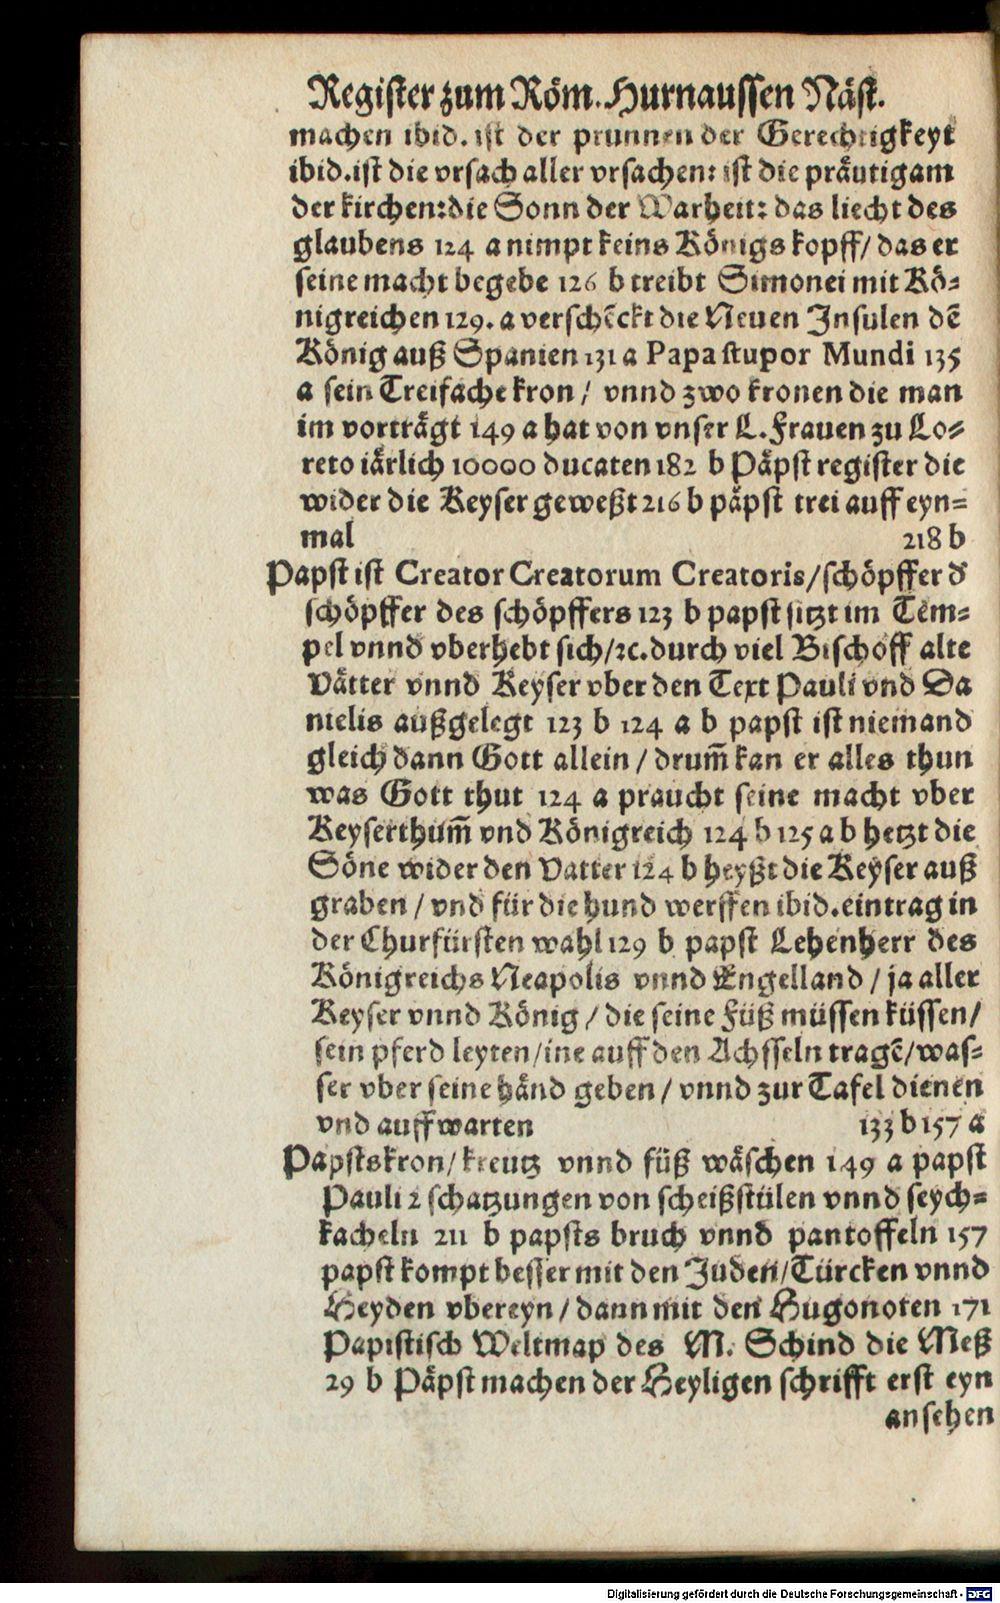 Register zum Röm. Hurnaussen Näst.
machen ibid. ist der prunnen der Gerechtigkeyt
ibid. ist die vrsach aller vrsachen: ist die präutigam
der kirchen: die Sonn der Warheit: das liecht des
glaubens 124 a nimpt keins Königs kopff/ das er
seine macht begebe 126 b treibt Simonei mit Kö-
nigreichen 129. a verschēckt die Neuen Insulen dē
König auß Spanien 131 a Papa stupor Mundi 135
a sein Treifache kron/ vnnd zwo kronen die man
im vorträgt 149 a hat von vnser L. Frauen zu Lo-
reto iärlich 10000 ducaten 182 b Päpst register die
wider die Keyser geweßt 216 b päpst trei auff eyn-
mal 218 b
Papst ist Creator Creatorum Creatoris/ schöpffer d̕
schöpffer des schöpffers 123 b papst sitzt im Tem-
pel vnnd vberhebt sich/ ꝛc. durch viel Bischoff alte
Vätter vnnd Keyser vber den Text Pauli vnd Da
nielis außgelegt 123 b 124 a b papst ist niemand
gleich dann Gott allein/ drum̄ kan er alles thun
was Gott thut 124 a praucht seine macht vber
Keyserthum̄ vnd Königreich 124 b 125 a b hetzt die
Söne wider den Vatter 124 b heyßt die Keyser auß
graben/ vnd für die hund werffen ibid. eintrag in
der Churfürsten wahl 129 b papst Lehenherr des
Königreichs Neapolis vnnd Engelland/ ja aller
Keyser vnnd König/ die seine Füß müssen küssen/
sein pferd leyten/ ine auff den Achsseln tragē/ was-
ser vber seine händ geben/ vnnd zur Tafel dienen
vnd auffwarten 133 b 157 a
Papstskron/ kreutz vnnd füß wäschen 149 a papst
Pauli 2 schatzungen von scheißstülen vnnd seych-
kacheln 211 b papsts bruch vnnd pantoffeln 157
papst kompt besser mit den Juden/ Türcken vnnd
Heyden vbereyn/ dann mit den Hugonoten 171
Papistisch Weltmap des M. Schind die Meß
29 b Päpst machen der Heyligen schrifft erst eyn
ansehen
Digitalisierung gefördert durch die Deutsche Forschungsgemeinschaft - DFG